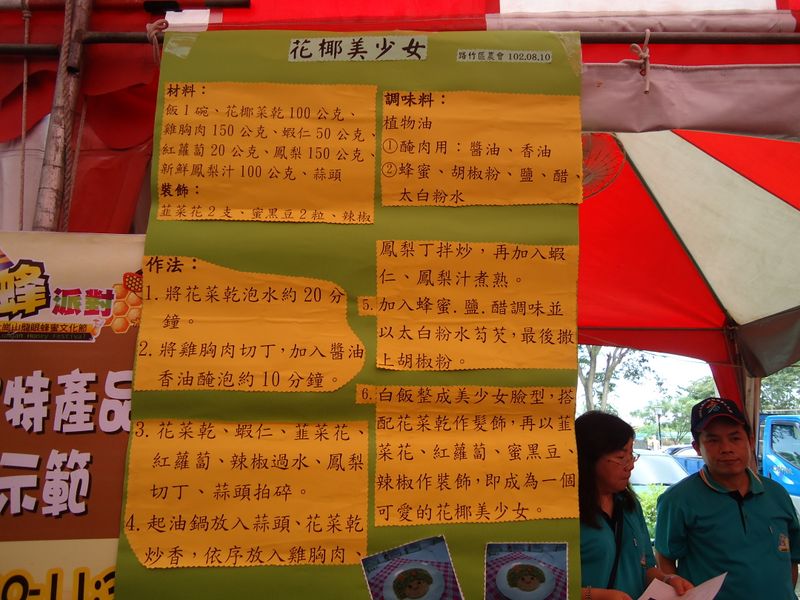 花椰美少女
路竹區農會 102.08.10
材料：
飯1碗、花椰菜乾100公克、
雞胸肉150公克、蝦仁50公克、
紅蘿蔔20公克、鳳梨150公克、
新鮮鳳梨汁100公克、蒜頭
裝飾：
韮菜花2支、蜜黑豆2粒、辣椒
調味料：
植物油
①醃肉用：醬油、香油
②蜂蜜、胡椒粉、鹽、醋、
太白粉水
作法：
1.將花菜乾泡水約20分
鐘。
2.將雞胸肉切丁，加入醬油
香油醃泡約10分鐘。
3.花菜乾、蝦仁、韮菜花、
紅蘿蔔、辣椒過水、鳳梨
切丁、蒜頭拍碎。
4.起油鍋放入蒜頭、花菜乾
炒香，依序放入雞胸肉、
鳳梨丁拌炒，再加入蝦
仁、鳳梨汁煮熟。
5.加入蜂蜜.鹽.醋調味並
以太白粉水芶芡，最後撒
上胡椒粉。
6.白飯整成美少女臉型，搭
配花菜乾作髮飾，再以韮
菜花、紅蘿蔔、蜜黑豆、
辣椒作裝飾，即成為一個
可愛的花椰美少女。
蜂派對
崗山龍眼蜂蜜文化節
特產品
示範